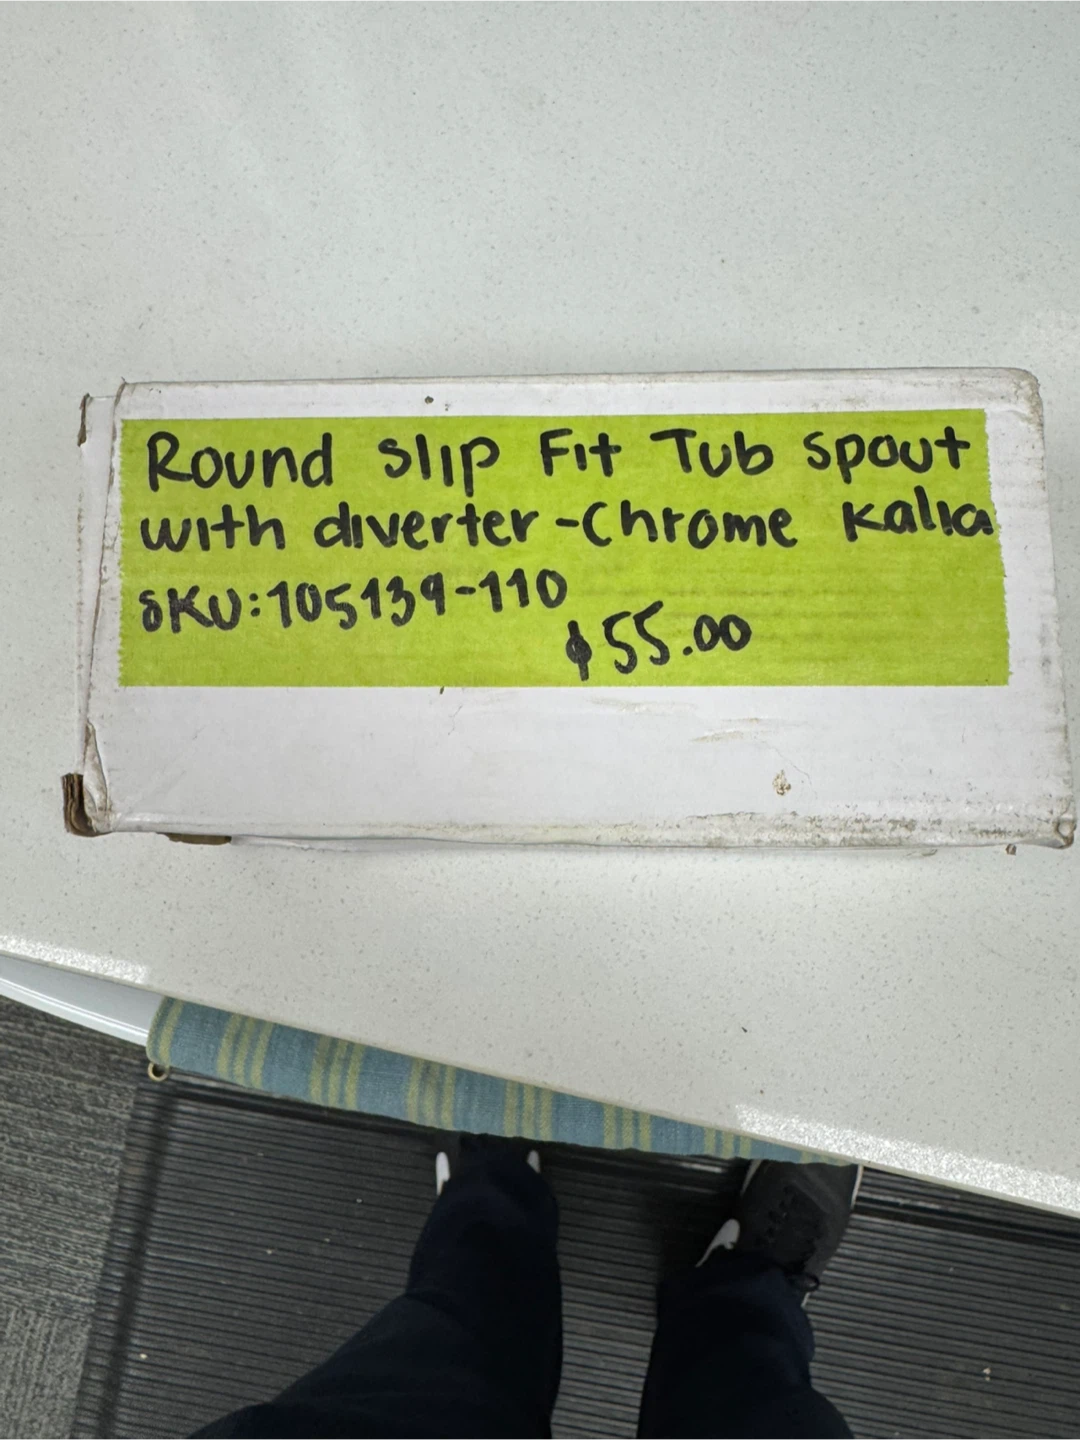 Round Slip Fit Tub Spout
with diverter - Chrome Kalia
SKU: 105139-110
$55.00